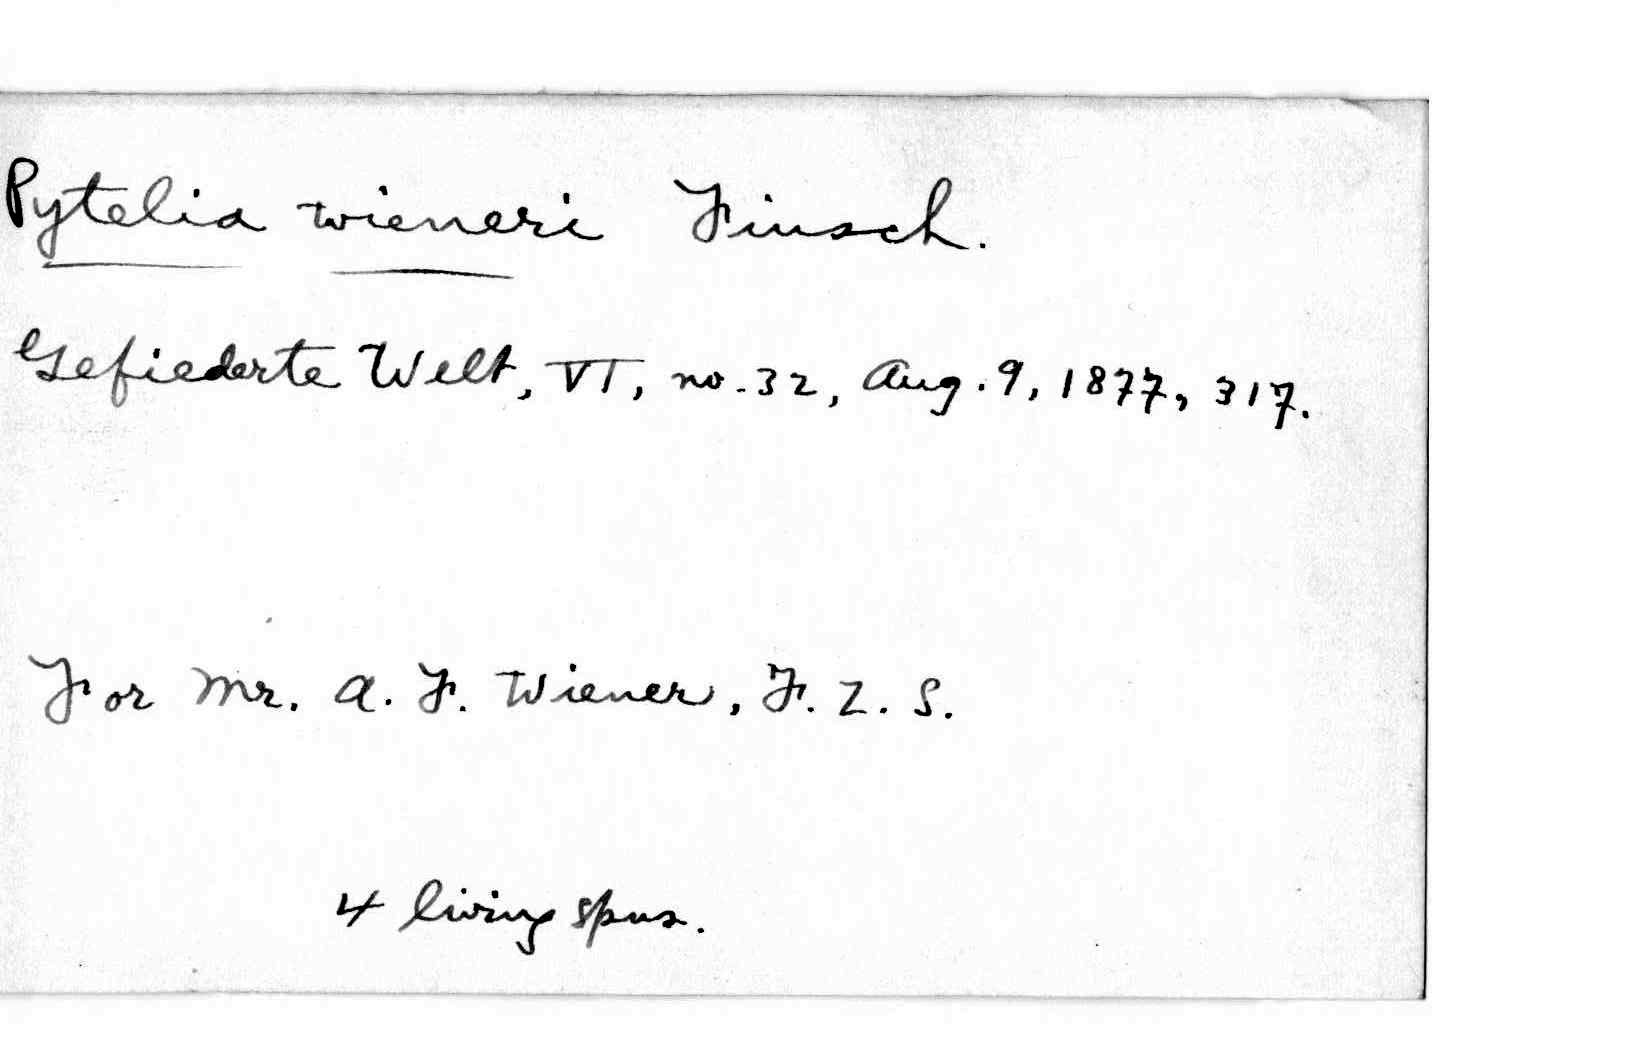 Pytelia wieneri Finsch.
Gefiederte Welt, VI, no. 32, Aug. 9, 1877, 317.
For Mr. A. F. Wiener, F. Z. S.
4 living spns.